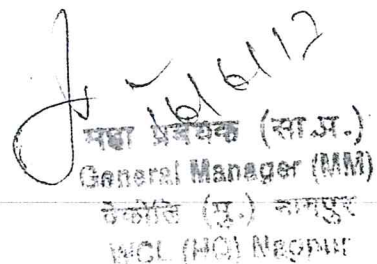 16/6/12
महा प्रबंधक (सा.प्र.)
General Manager (MM)
वेकोलि (मु.) नागपुर
WCL (HQ) Nagpur